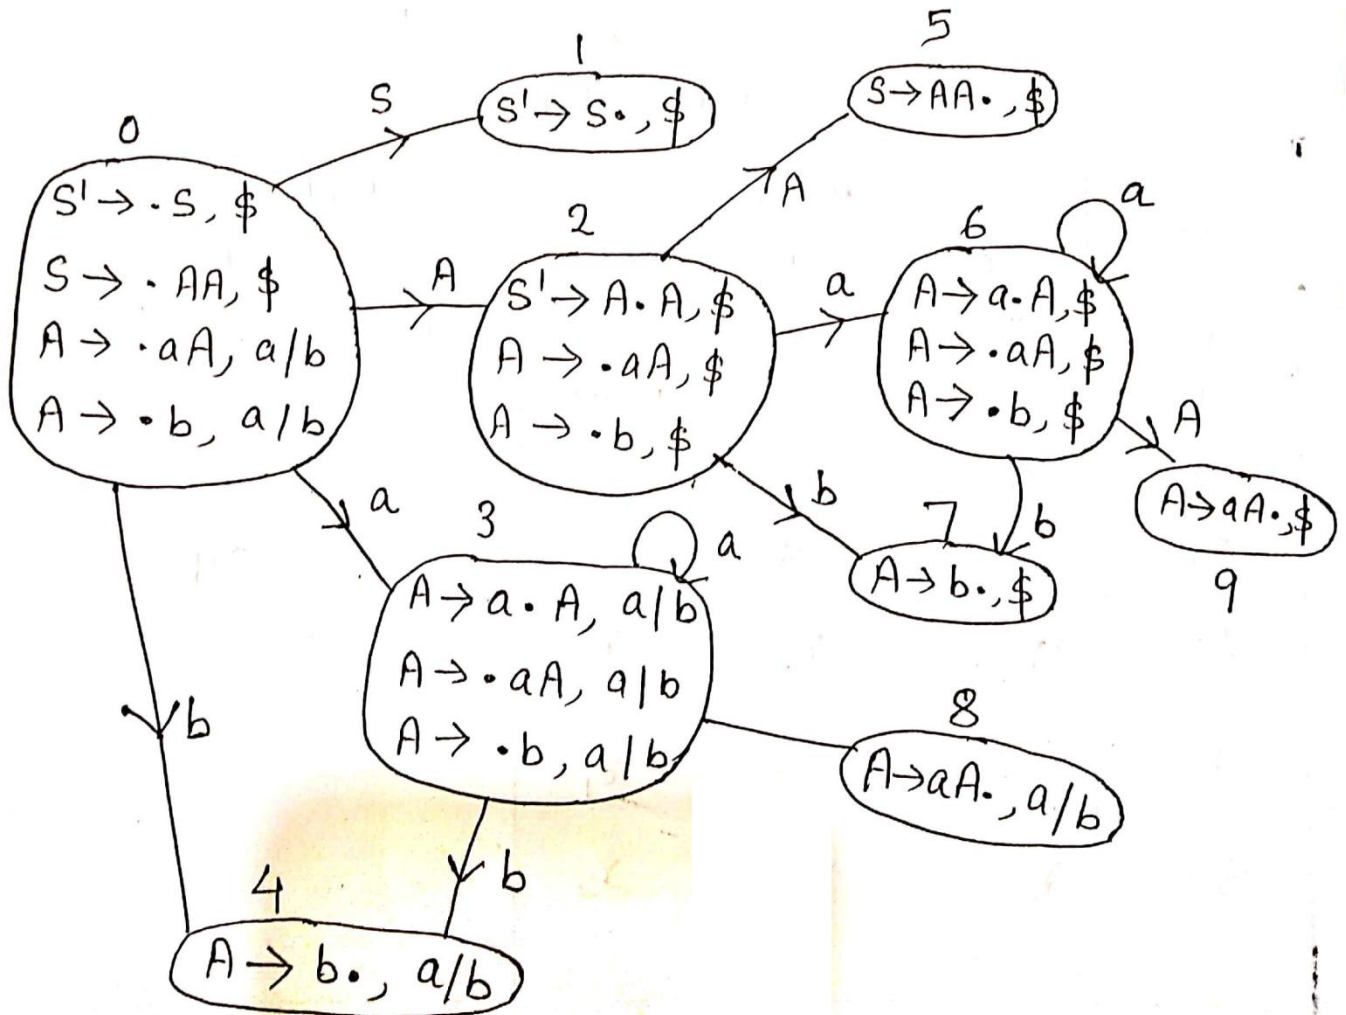 0
S' → ·S, $
S → · AA, $
A → ·aA, a/b
A → ·b, a/b
S
1
S' → S·, $
A
2
S' → A·A, $
A → ·aA, $
A → ·b, $
A
5
S → AA·, $
a
6
a
A → a·A, $
A → ·aA, $
A → ·b, $
A
A → aA·, $
9
b
b
7
A → b·, $
a
3
a
A → a·A, a/b
A → ·aA, a/b
A → ·b, a/b
8
A → aA·, a/b
b
b
4
A → b·, a/b